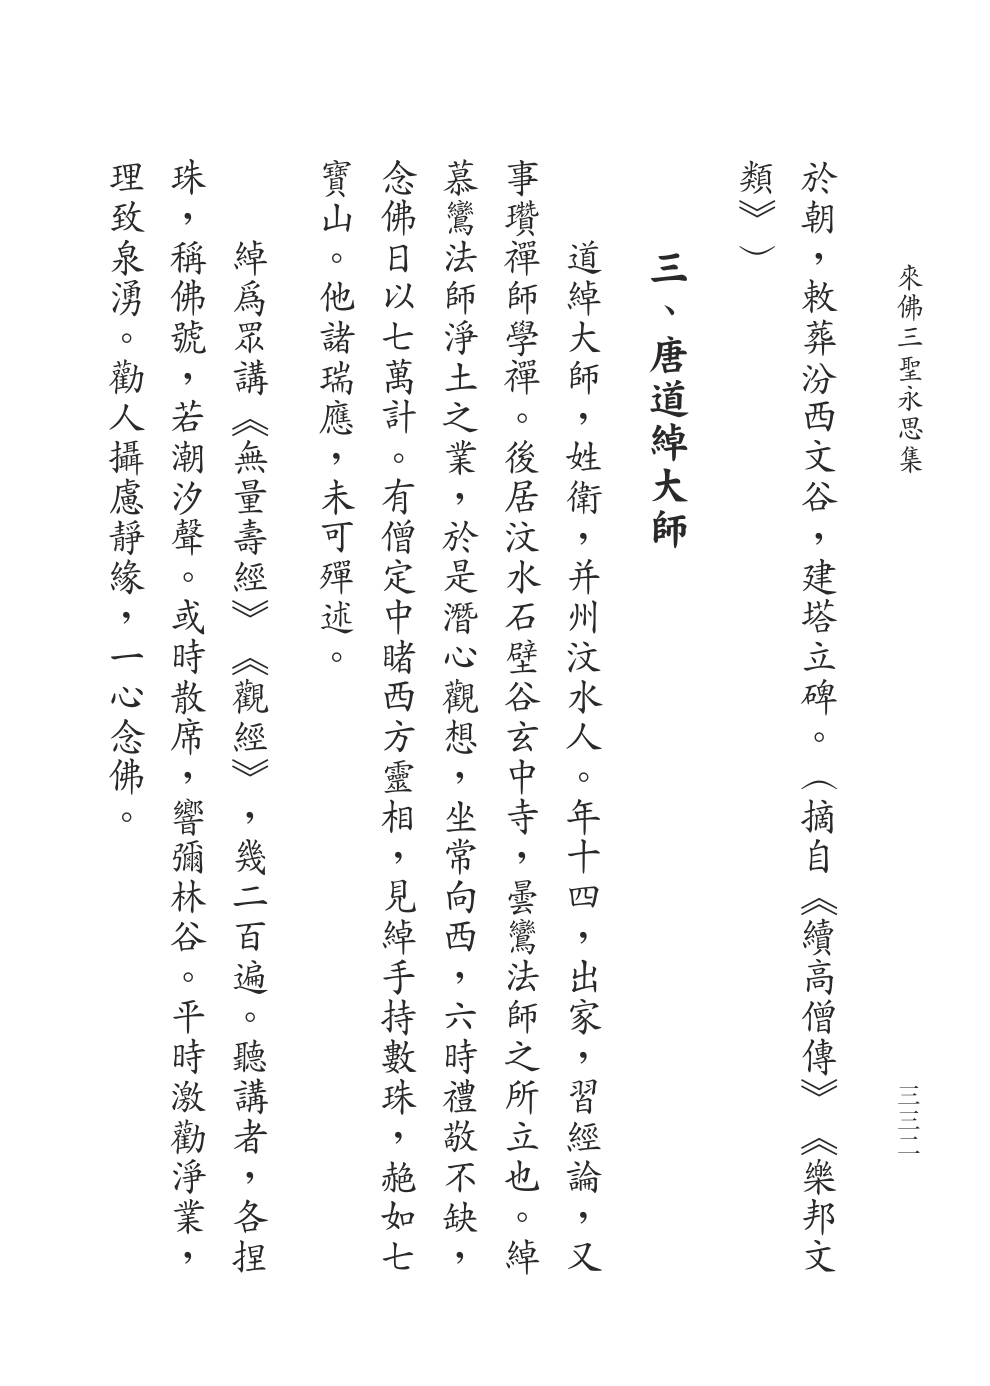 來佛三聖永思集
三三二
於朝，敕葬汾西文谷，建塔立碑。（摘自《續高僧傳》《樂邦文
類》）
三、唐道綽大師
道綽大師，姓衛，并州汶水人。年十四，出家，習經論，又
事瓚禪師學禪。後居汶水石壁谷玄中寺，曇鸞法師之所立也。綽
慕鸞法師淨土之業，於是潛心觀想，坐常向西，六時禮敬不缺，
念佛日以七萬計。有僧定中睹西方靈相，見綽手持數珠，赩如七
寶山。他諸瑞應，未可殫述。
綽爲眾講《無量壽經》《觀經》，幾二百遍。聽講者，各捏
珠，稱佛號，若潮汐聲。或時散席，響彌林谷。平時激勸淨業，
理致泉湧。勸人攝慮靜緣，一心念佛。